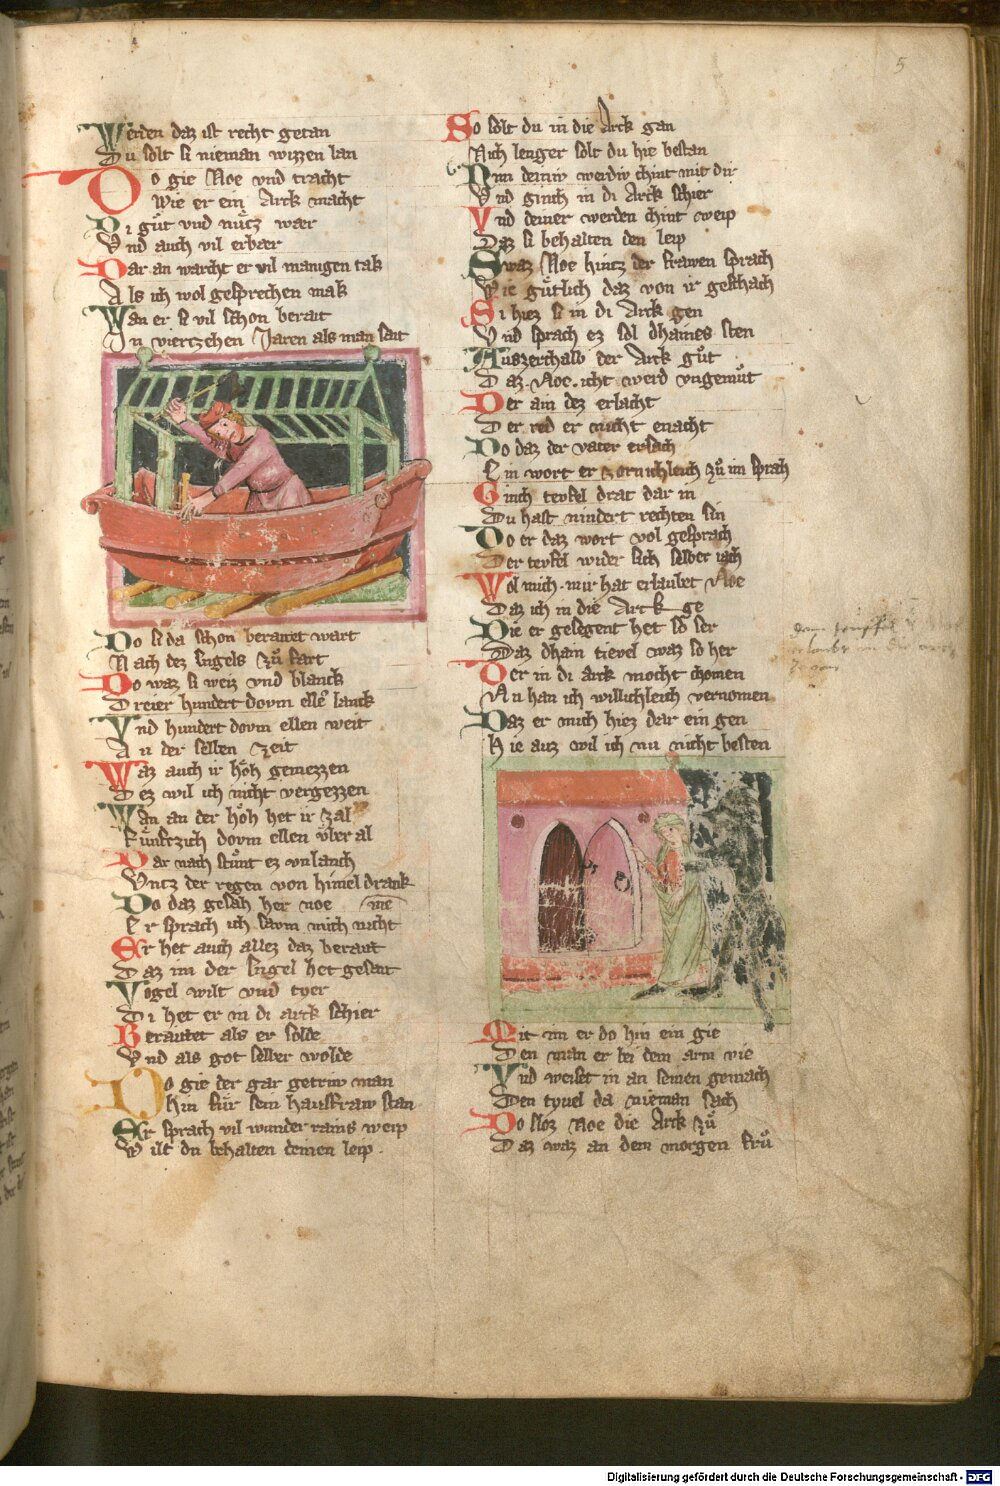 5
Werden daz ist recht getan
Du solt si nieman wizzen lan
Do gie Noe vnd tracht
Wie er ein Arck macht
Di guͦt vnd nuͤcz wær
Vnd auch vil erbær
Dar an warcht er vil manigen tak
Als ich wol gesprechen mak
Wan er si vil schon berait
In viertzehen Jaren als man sait
Do si da schon beraitet wart
Nach dez Engels zuͦ fart
Do waz si weiz vnd blanck
Dreier hundert dovm elle lanck
Vnd hundert dovm ellen weit
An der selben zeit
Waz auch ir hoͤh gemezzen
Dez wil ich nicht vergezzen
Wan an der hoͤh het ir zal
Fuͤnfczich dovm ellen vber al
Dar nach stuͦnt ez vnlanch
Vntz der regen von himel drank
Do daz gesah her noe
Er sprach ich savm mich nicht
Er het auch allez daz berait
Daz im der Engel het gesait
Vogel wilt vnd tyer
Di het er in di arck schier
Beraitet als er solde
Vnd als got selber wolde
Do gie der gar getriw man
Hin fuͤr sein hausfraw stan
Er sprach vil wunder rains weip
Wilt du behalten deinen leip
So solt du in die Arck gan
Nich lenger solt du hie bestan
Nim deiniv werdiv chint mit dir
Vnd ginch in di Arck schier
Vnd deiner werden chint weip
Daz si behalten den leip
Swaz Noe hincz der frawen sprach
Wie guͤtlich daz von ir geschach
Si hiez si in di Arck gen
Vnd sprach ez sol dhaines sten
Auszerthalb der Arck guͦt
Daz Noe icht werd vngemuͦt
Der ain dez erlacht
Der red er nicht enacht
Do daz der vater ersach
Ein wort er zornichleich zuͦ im sprah
Ginch teyfel drat dar in
Du hast nindert rechten sin
Do er daz wort vol gesprach
Der teyfel wider sich selber iach
Wol mich mir hat erlaubet Noe
Daz ich in die Arck ge
Die er gesegent het so ser
Daz dhain tievel waz so her
Der in di arck mocht chomen
Nu han ich willichleich vernomen
Daz er mich hiez dar ein gen
Hie auz wil ich nu nicht besten
Mit im er do hin ein gie
Den man er bei dem arm vie
Vnd weiset in an seinen gemach
Den tyuel da nieman sach
Do sloz Noe die Arck zuͦ
Daz waz an dem morgen fruͦ
Digitalisierung gefördert durch die Deutsche Forschungsgemeinschaft - DFG